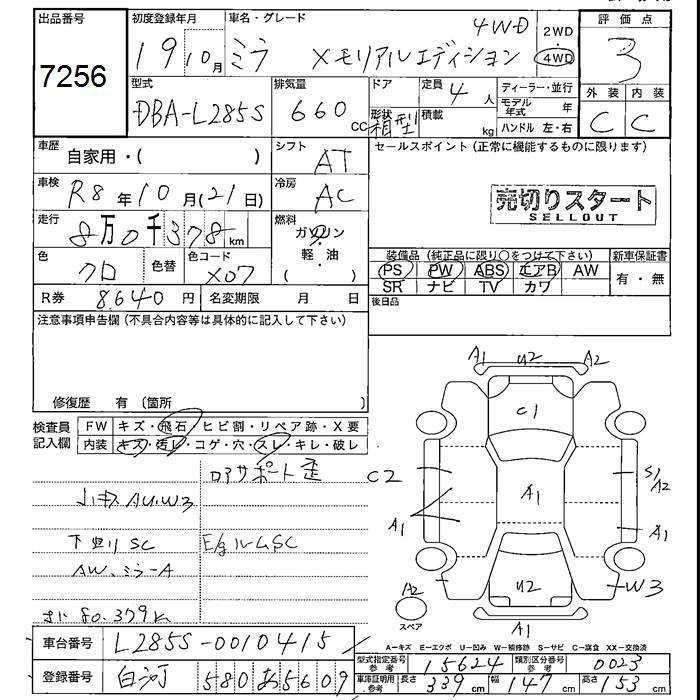 出品番号 初度登録年月 車名・グレード 4WD 2WD 評価点
7256 19 10月 ミラ Xモリアルエディション 4WD 3
型式 排気量 ドア 定員 4人 ディーラー・並行 外装 内装
DBA-L285S 660cc 形状 箱型 積載 kg モデル年式 年 C C
ハンドル 左・右
車歴 自家用・( ) シフト AT セールスポイント (正常に機能するものに限ります)
車検 R8年10月(21日) 冷房 AC 売切りスタート
SELLOUT
走行 8万0千378km 燃料 ガソリン
軽・油
( )
色 クロ 色替 色コード X07
装備品 (純正品に限り○をつけて下さい) 新車保証書
PS PW ABS エアB AW 有・無
SR ナビ TV カワ
R券 8.640円 名変期限 月 日 後日品
注意事項申告欄 (不具合内容等は具体的に記入して下さい)
修復歴 有 (箇所 )
検査員 FW キズ・飛石・ヒビ割・リペア跡・X要
記入欄 内装 キズ・汚レ・コゲ・穴・スレ・キレ・破レ
ロアサポート歪
小キズ AU.W3
下回り SC E/gルームSC
AW、ミラーA
80.379k
A1 U2 A2
C1
C2 A1 S1
A2
A1 A1
A2 U2 W3
スペア A1
A-キズ E-エクボ U-凹み W-補修跡 S-サビ C-腐食 XX-交換済
車台番号 L285S-0010415
型式指定番号 参考 15624 類別区分番号 参考 0023
登録番号 白河 580 あ 5609
車庫証明用 参考 長さ 339cm 幅 147cm 高さ 153cm